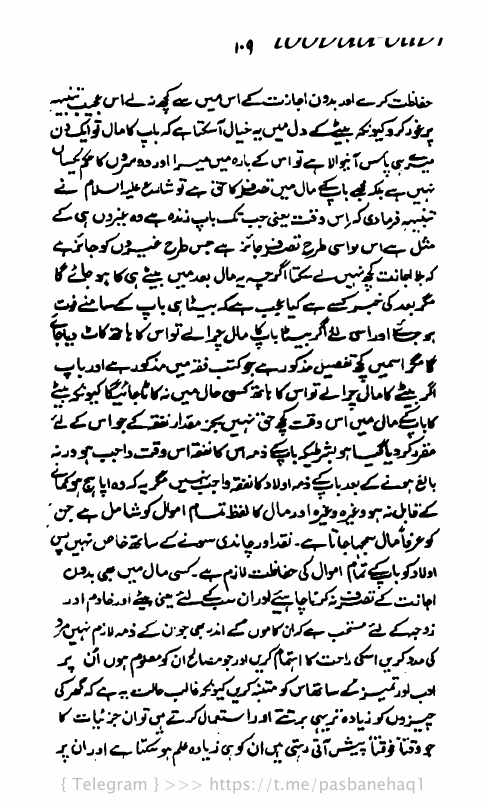 ۱۰۹
حفاظت کرے اور بدون اجازت کے اس میں سے کچھ نہ لے اس عجیب تنبیہ
پر غور کرو کیونکہ بیٹے کے دل میں یہ خیال آسکتا ہے کہ باپ کا مال تو ایک دن
میرے ہی پاس آنیوالا ہے تو اس کے بارہ میں میرا اور دوسروں کا حکم یکساں
نہیں ہے بلکہ مجھے باپ کے مال میں تصرف کا حق ہے تو شارع علیہ السلام نے
تنبیہ فرمادی کہ اس وقت یعنی جب تک باپ زندہ ہے وہ غیروں ہی کے
مثل ہے اس کو اسی طرح تصرف جائز ہے جس طرح غیروں کو جائز ہے
کہ بلا اجازت کچھ نہیں لے سکتا اگرچہ یہ مال بعد میں بیٹے ہی کا ہو جائے گا
مگر بعد کی خبر کسے ہے کیا عجب ہے کہ بیٹا ہی باپ کے سامنے فوت
ہو جائے اور اسی لئے اگر بیٹا باپ کا مال چرا لے تو اس کا ہاتھ کاٹ دیا جائے
گا مگر اسمیں کچھ تفصیل مذکور ہے جو کتب فقہ میں مذکور ہے اور باپ
اگر بیٹے کا مال چرا لے تو اس کا ہاتھ کسی حال میں نہ کاٹا جائیگا کیونکہ بیٹے
کا باپ کے مال میں اس وقت کچھ حق نہیں بجز مقدار نفقہ کے جو اس کے لئے
مقرر کر دیا گیا ہو بشرطیکہ باپ کے ذمہ اس کا نفقہ اس وقت واجب ہو ورنہ
بالغ ہونے کے بعد باپ کے ذمہ اولاد کا نفقہ واجب نہیں مگر یہ کہ وہ اپاہج ہو کمانے
کے قابل نہ ہو وغیرہ وغیرہ اور مال کا لفظ تمام اموال کو شامل ہے جن
کو عرفاً مال سمجھا جاتا ہے۔ نقد اور چاندی سونے کے ساتھ خاص نہیں پس
اولاد کو باپ کے تمام اموال کی حفاظت لازم ہے۔ کسی مال میں بھی بدون
اجازت کے تصرف نہ کرنا چاہیئے اور ان سب کے لئے یعنی بیٹے اور خادم اور
زوجہ کے لئے مستحب ہے کہ ان کاموں کے اندر بھی جو ان کے ذمہ لازم نہیں
کی مدد کریں اسکی راحت کا اہتمام کریں اور جو مصالح ان کو معلوم ہوں اُن پر
ادب اور تمیز کے ساتھ اس کو متنبہ کریں کیونکہ غالب حالت یہ ہے کہ گھر کی
چیزوں کو زیادہ تر یہی برتتے اور استعمال کرتے ہیں تو ان جزئیات کا
جو وقتاً فوقتاً پیش آتی رہتی ہیں ان کو ہی زیادہ علم ہو سکتا ہے اور ان پر
{ Telegram } >>> https://t.me/pasbanehaq1